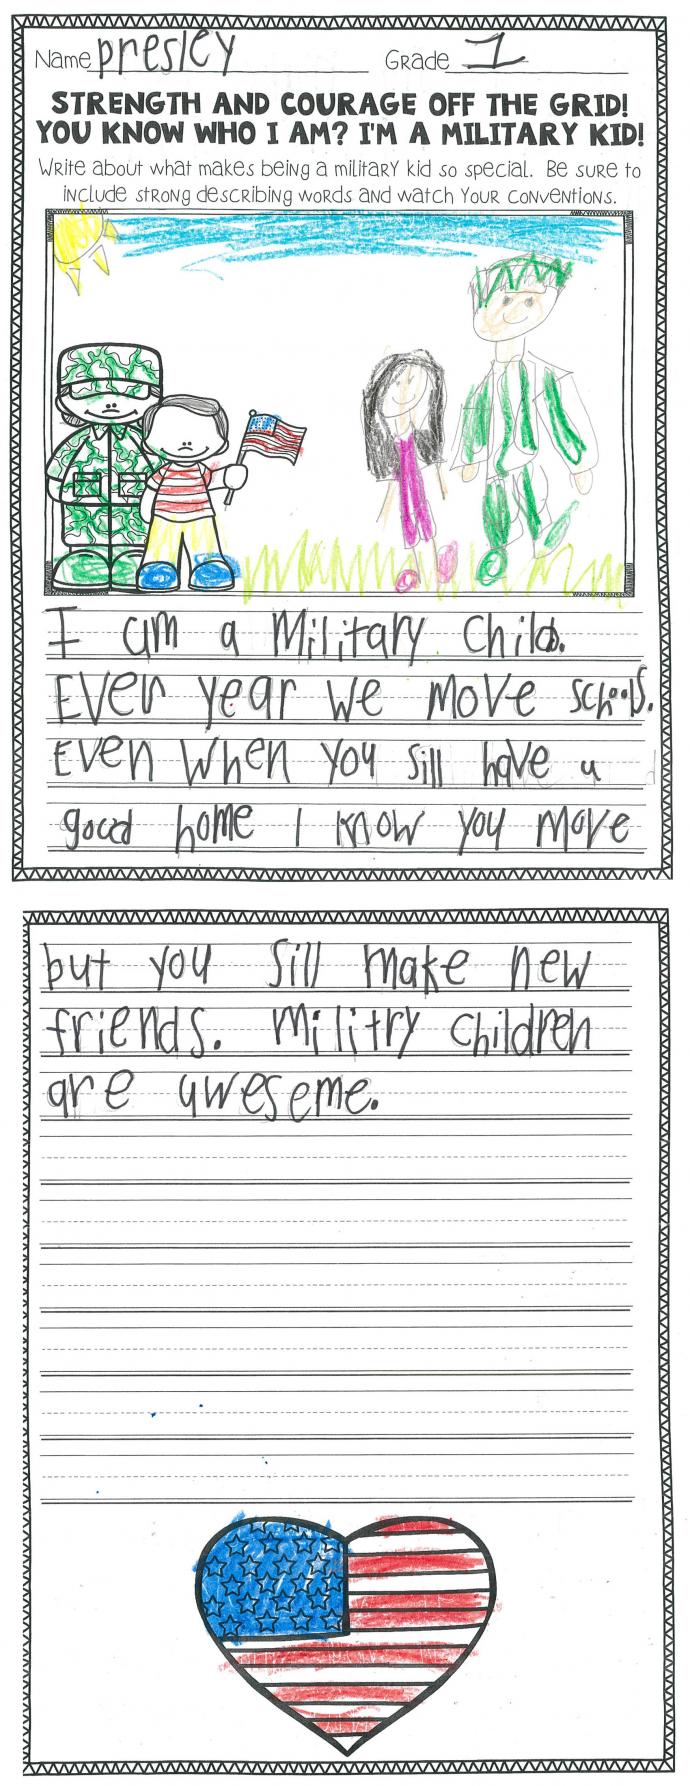 Name presley Grade 1
STRENGTH AND COURAGE OFF THE GRID!
YOU KNOW WHO I AM? I'M A MILITARY KID!
Write about what makes being a military kid so special. Be sure to
include strong describing words and watch your conventions.
I am a Military Child.
Ever year we move schools.
Even when you sill have a
good home I know you move
but you sill make new
friends. Militry children
are aweseme.